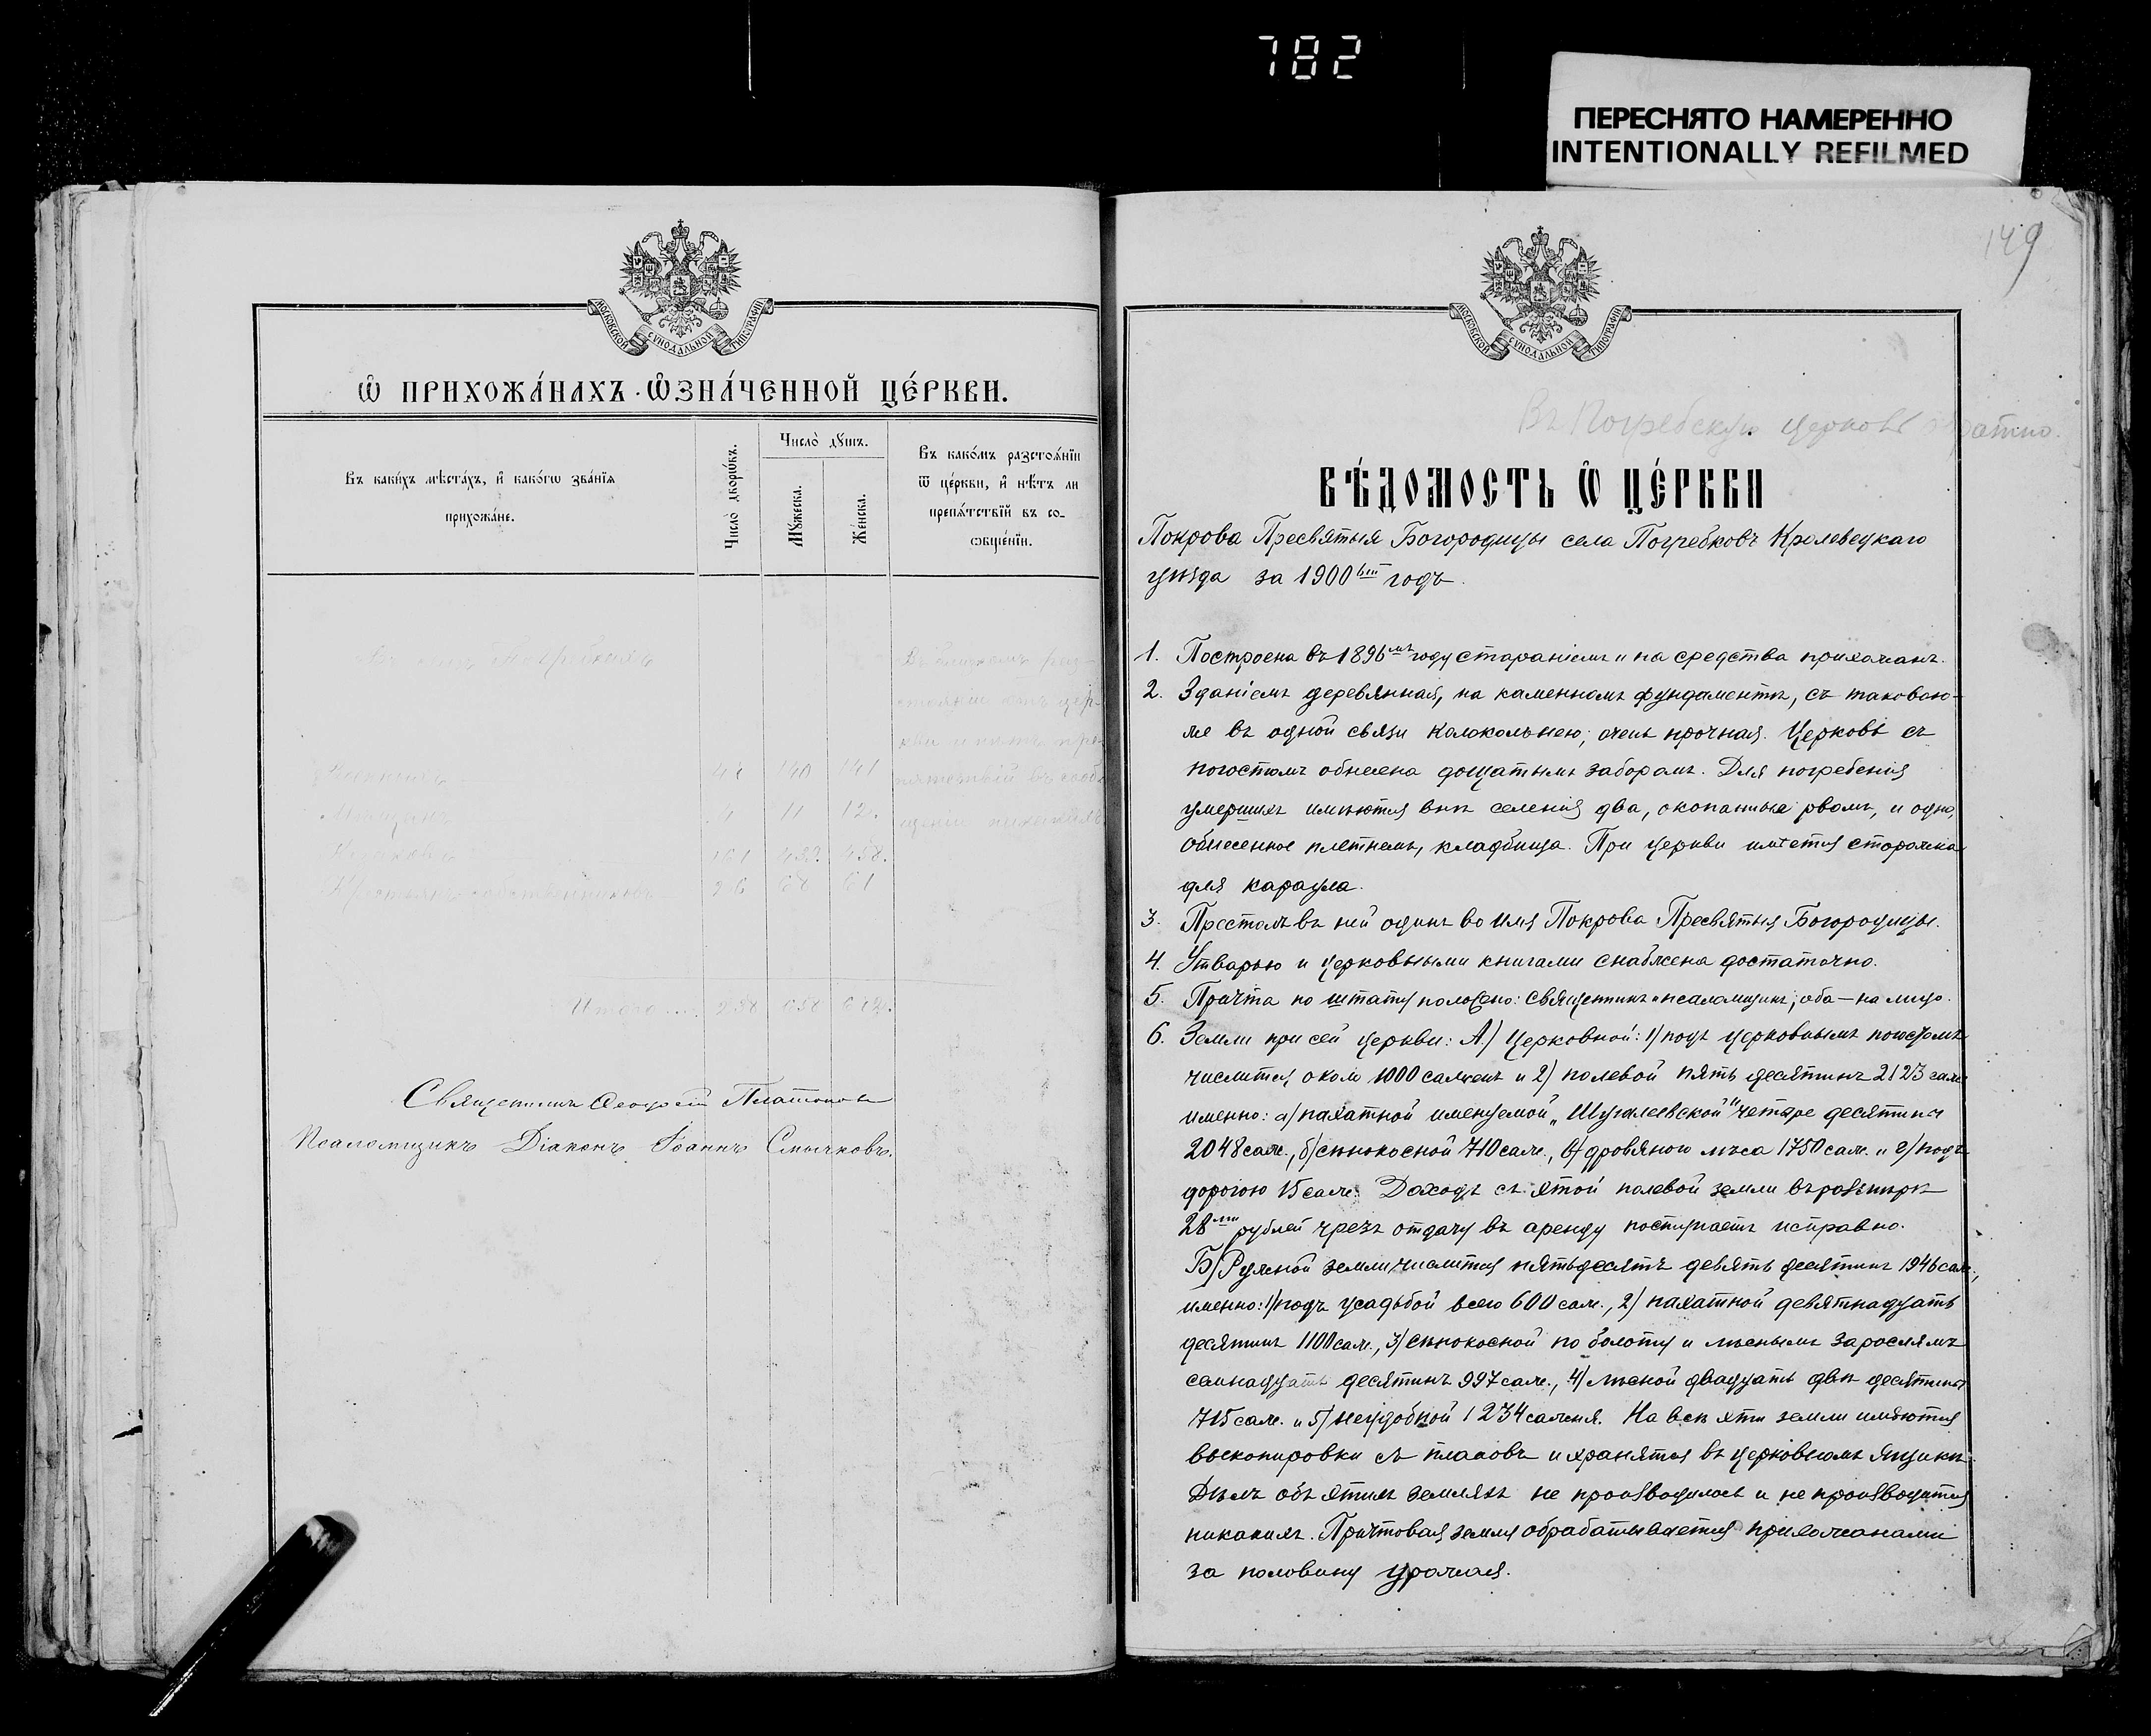 782
ПЕРЕСНЯТО НАМЕРЕННО
INTENTIONALLY REFILMED
МОСКОВСКОЙ СѴНОДАЛЬНОЙ ТИПОГРАФІИ
Ѡ ПРИХОЖА́НАХЪ ѠЗНА́ЧЕННОЙ ЦЕ́РКВИ.
Въ каки́хъ мѣста́хъ, и҆ како́гѡ зва́нїѧ
прихожа́не.
Число̀ дворѡ́въ.
Число̀ дꙋшъ.
Мꙋ́жеска.
Же́нска.
Въ како́мъ разстоѧ́нїи
ѿ це́ркви, и҆ нѣ́тъ ли
препѧ́тствїй въ со-
ѡбще́нїи.
Въ близкомъ раз-
стояніи отъ цер-
кви и нѣтъ пре-
пятствій въ сооб-
140 141
Мѣщанъ 4 11 12.
161 458.
Крестьянъ собственниковъ 26 68 61
Итого 238 658
Священникъ Георгій Платонов
Псаломщикъ Діаконъ Іоаннъ Смычковъ.
149
Въ Погребскую церковь обратно.
ВѢ́ДОМОСТЬ Ѡ ЦЕ́РКВИ
Покрова Пресвятыя Богородицы села Погребковъ Кролевецкаго
уѣзда за 1900ый годъ.
1. Построена въ 1896мъ году стараніемъ и на средства прихожанъ.
2. Зданіемъ деревянная, на каменномъ фундаментѣ, съ таковою-
же въ одной связи колокольнею; очень прочная. Церковь съ
погостомъ обнесена дощатымъ заборомъ. Для погребенія
умершихъ имѣются внѣ селенія два, окопанные рвомъ, и одно,
обнесенное плетнемъ, кладбища. При церкви имѣется сторожка
для караула.
3. Престолъ въ ней одинъ во имя Покрова Пресвятыя Богородицы.
4. Утварью и церковными книгами снабжена достаточно.
5. Причта по штату положено: священникъ и псаломщикъ; оба—на лицо.
6. Земли при сей церкви: А) Церковной: 1) подъ церковнымъ погостомъ
числится около 1000 сажень и 2) полевой пять десятинъ 2123 саж.
именно: а) пахатной именуемой „Шугалеевской" четыре десятины
2048 саж., б) сѣнокосной 710 саж., в) дровяного лѣса 1750 саж. и г) подъ
дорогою 15 саж. Доходъ съ этой полевой земли въ размѣрѣ
28ми рублей чрезъ отдачу въ аренду поступаетъ исправно.
Б) Ружной земли числится пятьдесятъ девять десятинъ 1946 саж.,
именно: 1) подъ усадьбой всего 600 саж., 2) пахатной девятнадцать
десятинъ 1100 саж., 3) сѣнокосной по болоту и лѣснымъ зарослямъ
семнадцать десятинъ 997 саж., 4) лѣсной двадцать двѣ десятины
715 саж. и 5) неудобной 1234 саженя. На всѣ эти земли имѣются
выкопировки съ плановъ и хранятся въ церковномъ ящикѣ.
Дѣлъ объ этихъ земляхъ не производилось и не производится
никакихъ. Причтовая земля обрабатывается прихожанами
за половину урожая.